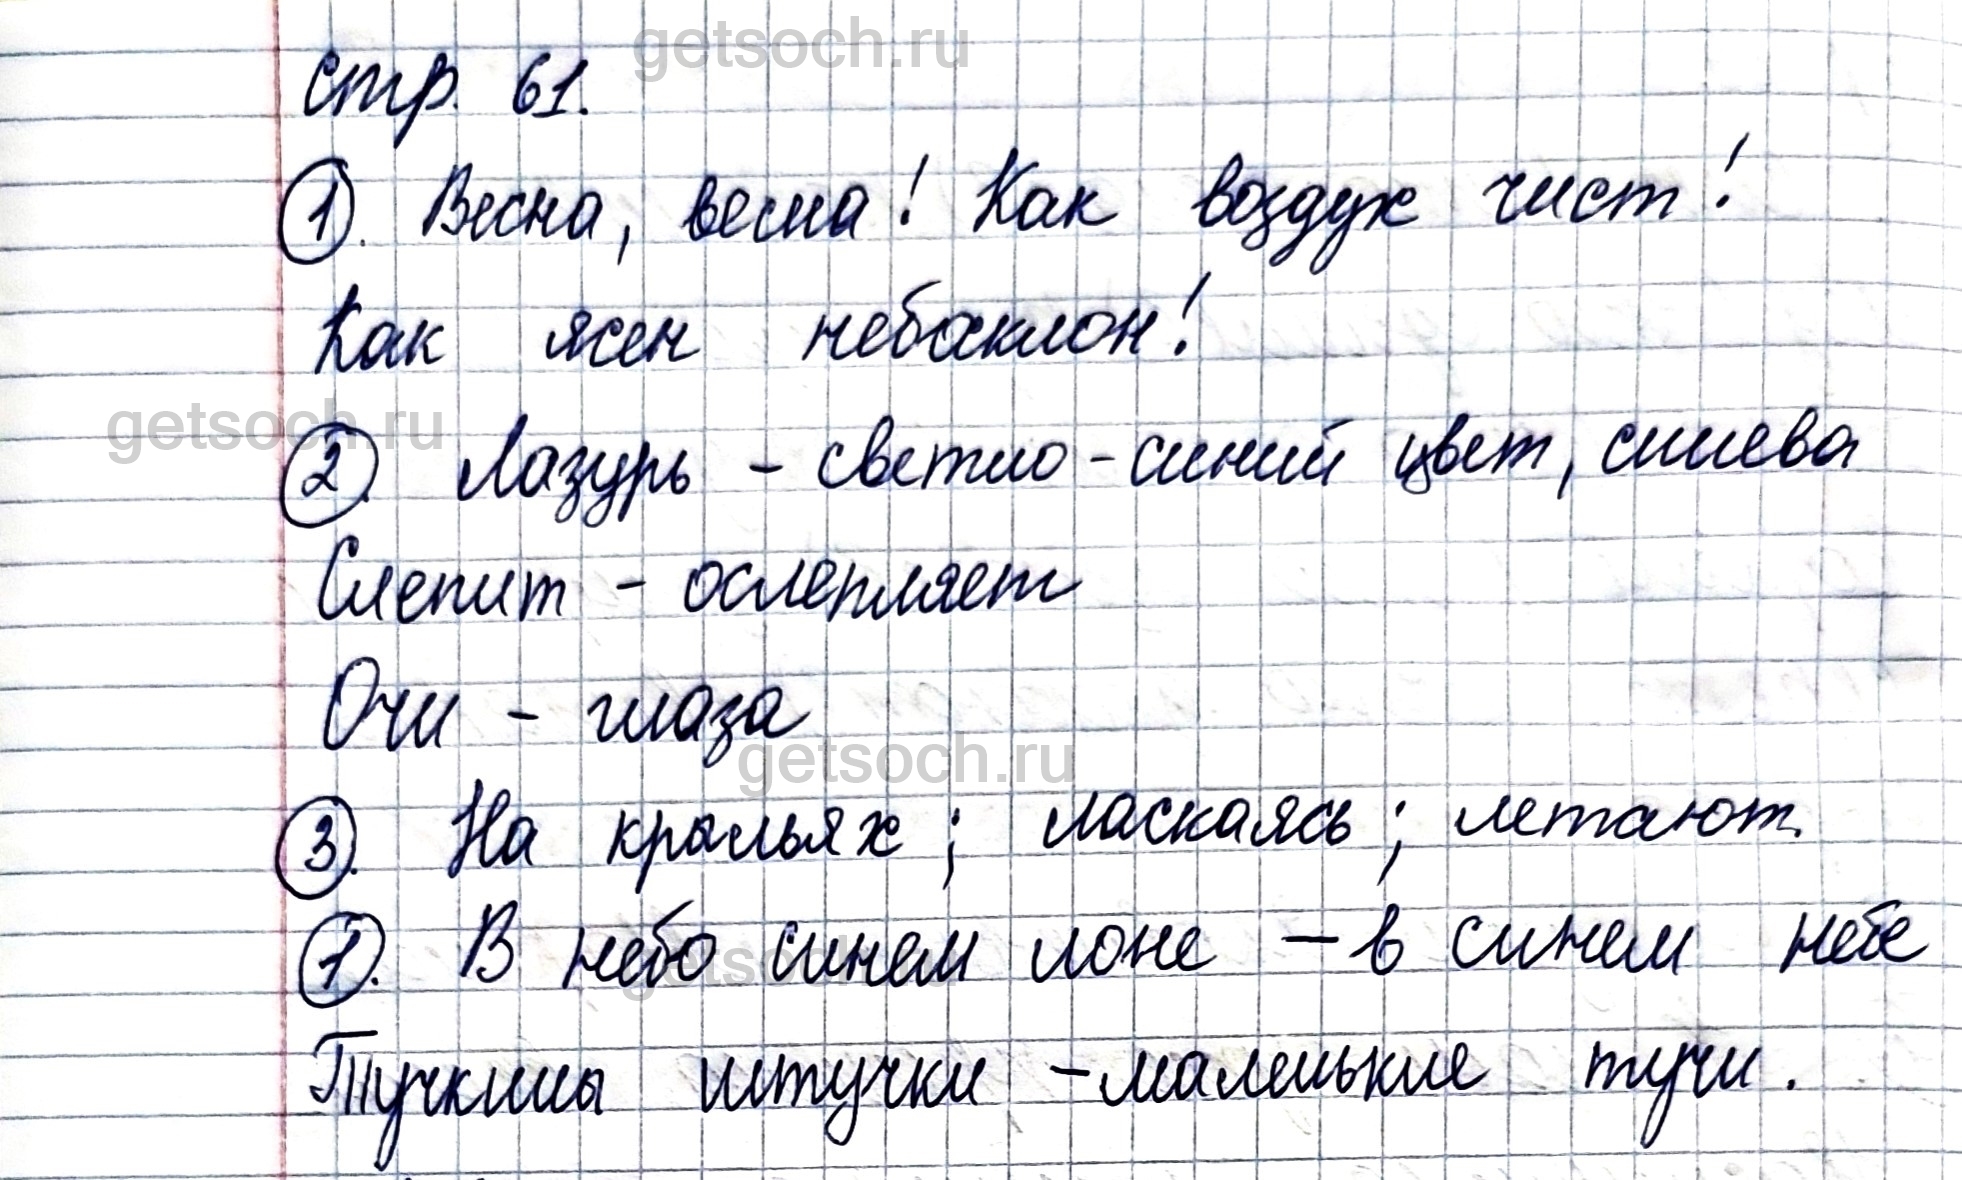 getsoch.ru
стр. 61.
1. Весна, весна! Как воздух чист!
Как ясен небосклон!
getsoch.ru
2. Лазурь - светло-синий цвет, синева
Слепит - ослепляет
Очи - глаза
getsoch.ru
3. На крыльях; ласкаясь; летают.
1. В небо синем лоне - в синем небе
Тучкины штучки - маленькие тучи.